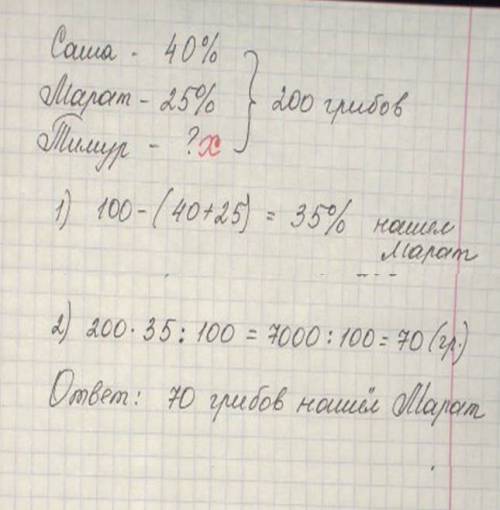 Саша - 40%
Марат - 25% } 200 грибов
Тимур - ? х
1) 100 - (40+25) = 35% нашел
Марат
2) 200 · 35 : 100 = 7000 : 100 = 70 (гр.)
Ответ: 70 грибов нашёл Марат